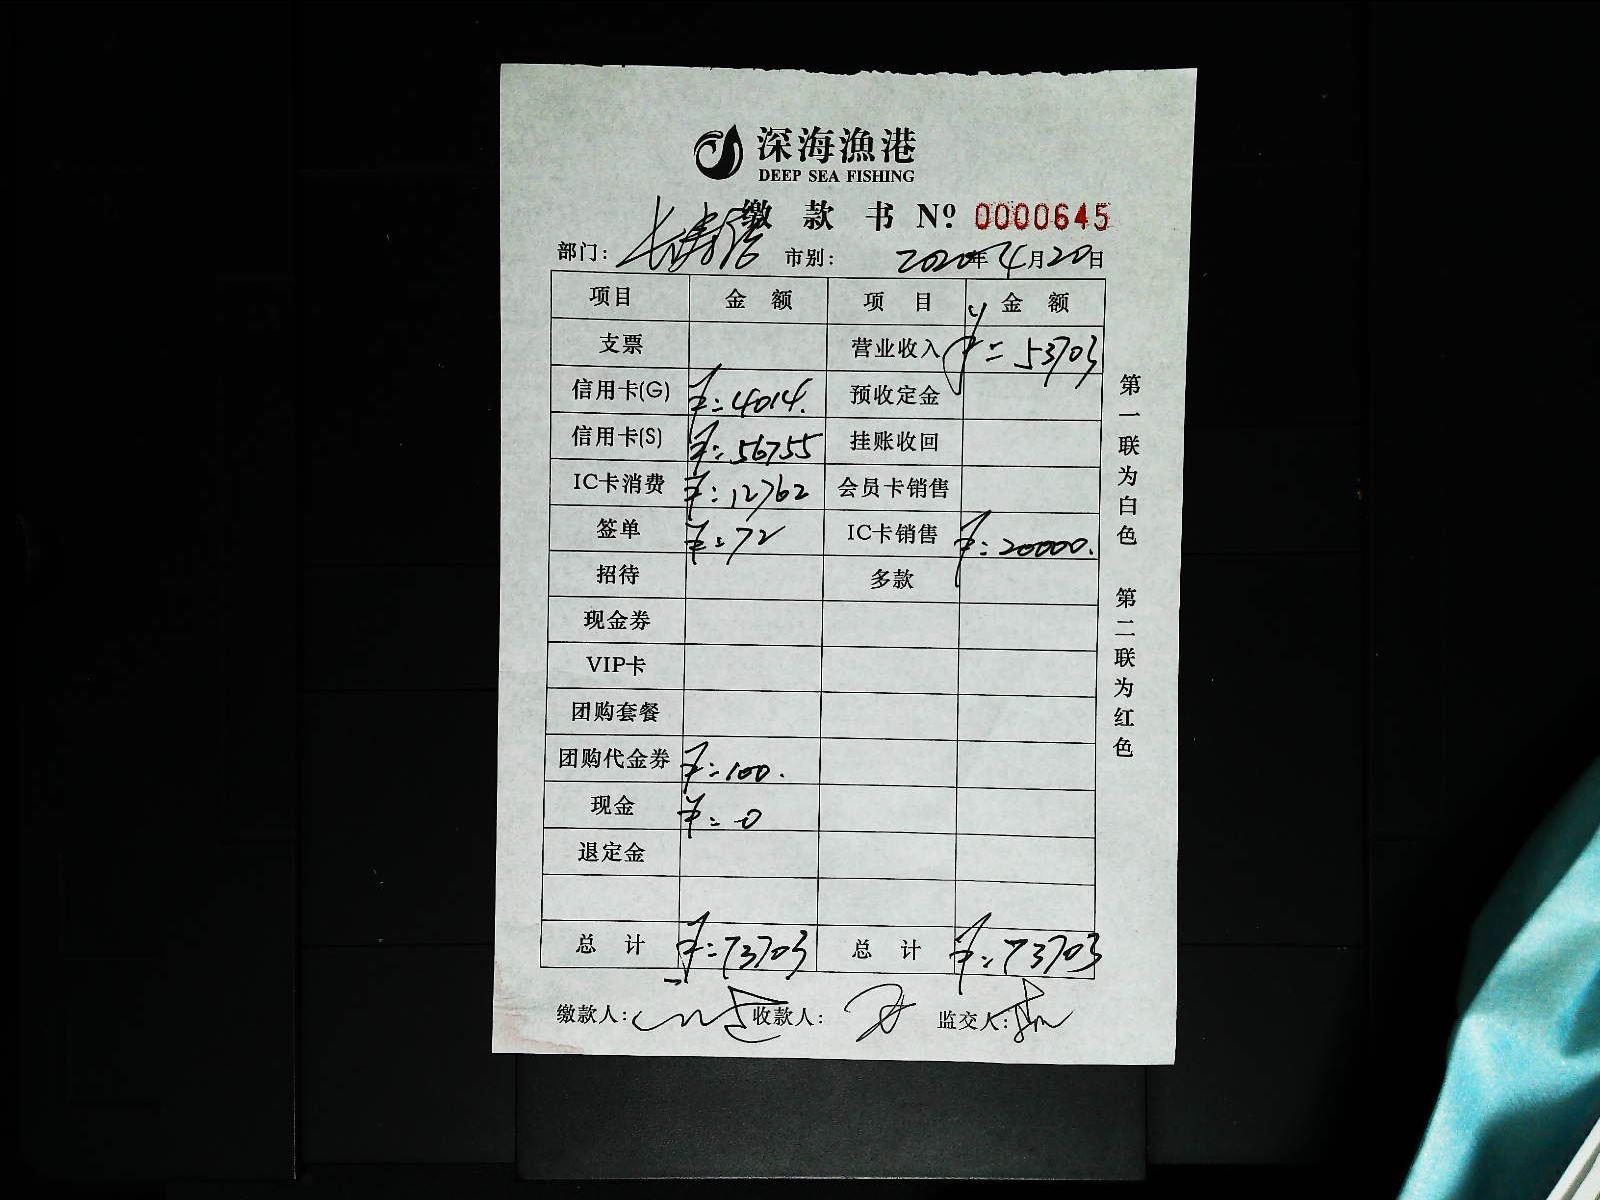 深海漁港
DEEP SEA FISHING
缴 款 书 Nº: 0000645
部门: 长寿路 市别: 2020年4月20日
项目 金 额 项 目 金 额
支票 营业收入 ¥=53703
信用卡(G) ¥:4014. 预收定金
信用卡(S) ¥:56755 挂账收回
IC卡消费 ¥:12762 会员卡销售
签单 ¥:72 IC卡销售 ¥:20000.
招待 多款
现金券
VIP卡
团购套餐
团购代金券 ¥:100.
现金 ¥:0
退定金
总 计 ¥:73703 总 计 ¥:73703
缴款人: 收款人: 监交人:
第一联为白色 第二联为红色